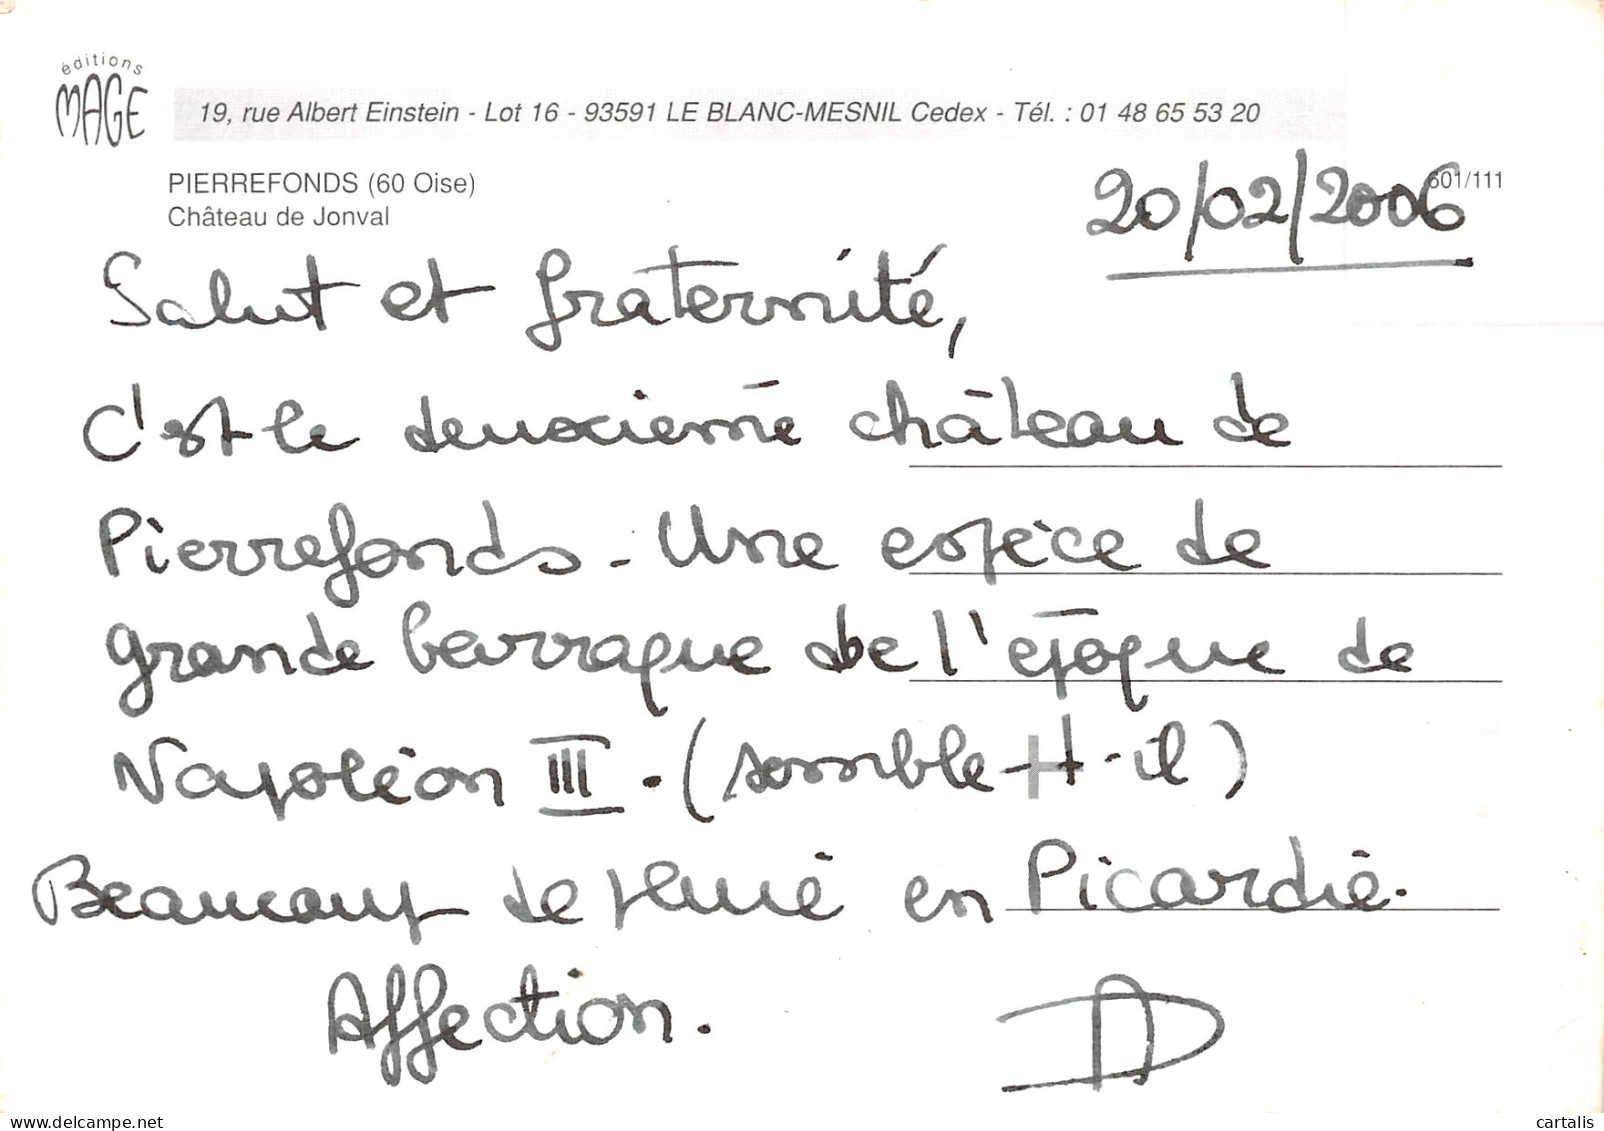 éditions
MAGE
19, rue Albert Einstein - Lot 16 - 93591 LE BLANC-MESNIL Cedex - Tél. : 01 48 65 53 20
PIERREFONDS (60 Oise)
601/111
Château de Jonval
20/02/2006
Salut et fraternité,
C'est le deuxième château de
Pierrefonds. Une espèce de
grande barraque de l'époque de
Napoléon III. (semble-t-il)
Beaucoup de pluie en Picardie.
Affection.
delcampe.net
cartalis